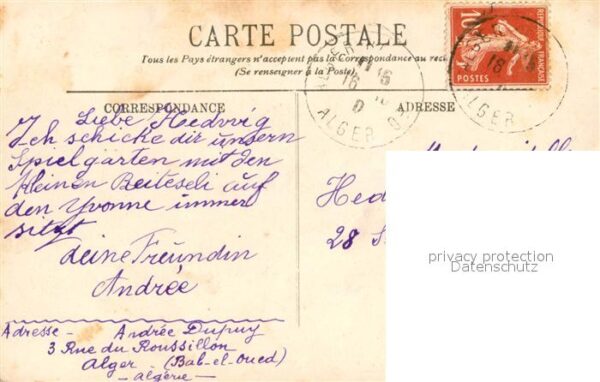 CARTE POSTALE
Tous les Pays étrangers n'acceptent pas la Correspondance au
(Se renseigner à la Poste)
CORRESPONDANCE
ADRESSE
Liebe Hedwig
Ich schicke dir unsern
Spielgarten mit den
kleinen Reiteseli auf
den Yvonne immer
sitzt
deine Freundin
Andrée
Adresse - Andrée Dupuy
3 Rue du Roussillon
Alger (Bab-el-Oued)
- Algérie -
Hed
28
10
POSTES
REPUBLIQUE FRANÇAISE
ALGER
16
ALGER
privacy protection
Datenschutz